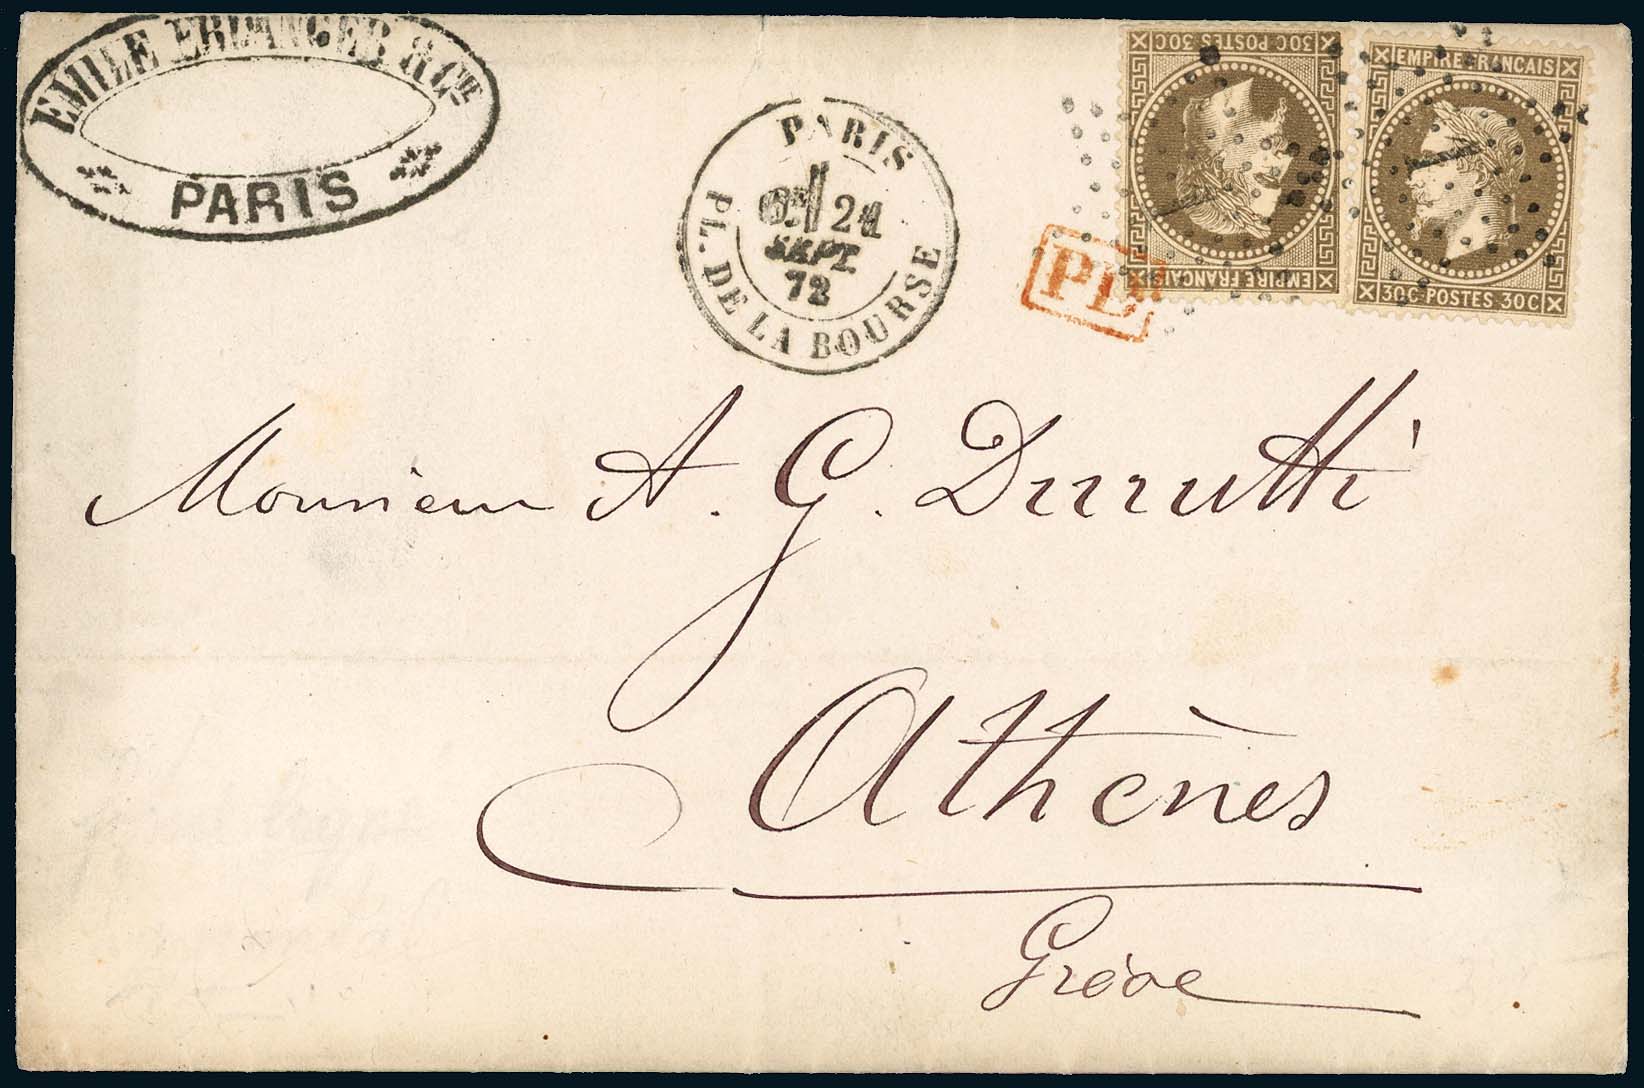 EMILE ERLANGER & CIE
PARIS
PARIS
21
SEPT.
72
PL. DE LA BOURSE
30C POSTES 30C
EMPIRE FRANCAIS
EMPIRE FRANCAIS
30C POSTES 30C
PD
Monsieur A. G. Durutti
Athènes
Grèce